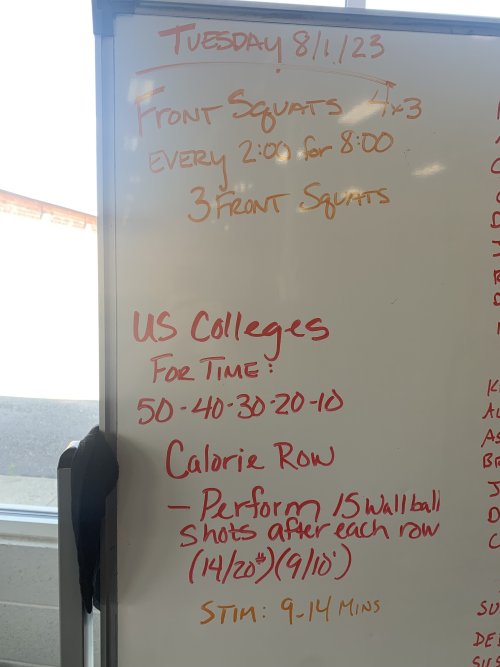 TUESDAY 8/1/23
FRONT SQUATS 4x3
EVERY 2:00 for 8:00
3 FRONT SQUATS
US Colleges
FOR TIME:
50-40-30-20-10
Calorie Row
- Perform 15 wall ball
shots after each row
(14/20#)(9/10')
STIM: 9-14 MINS